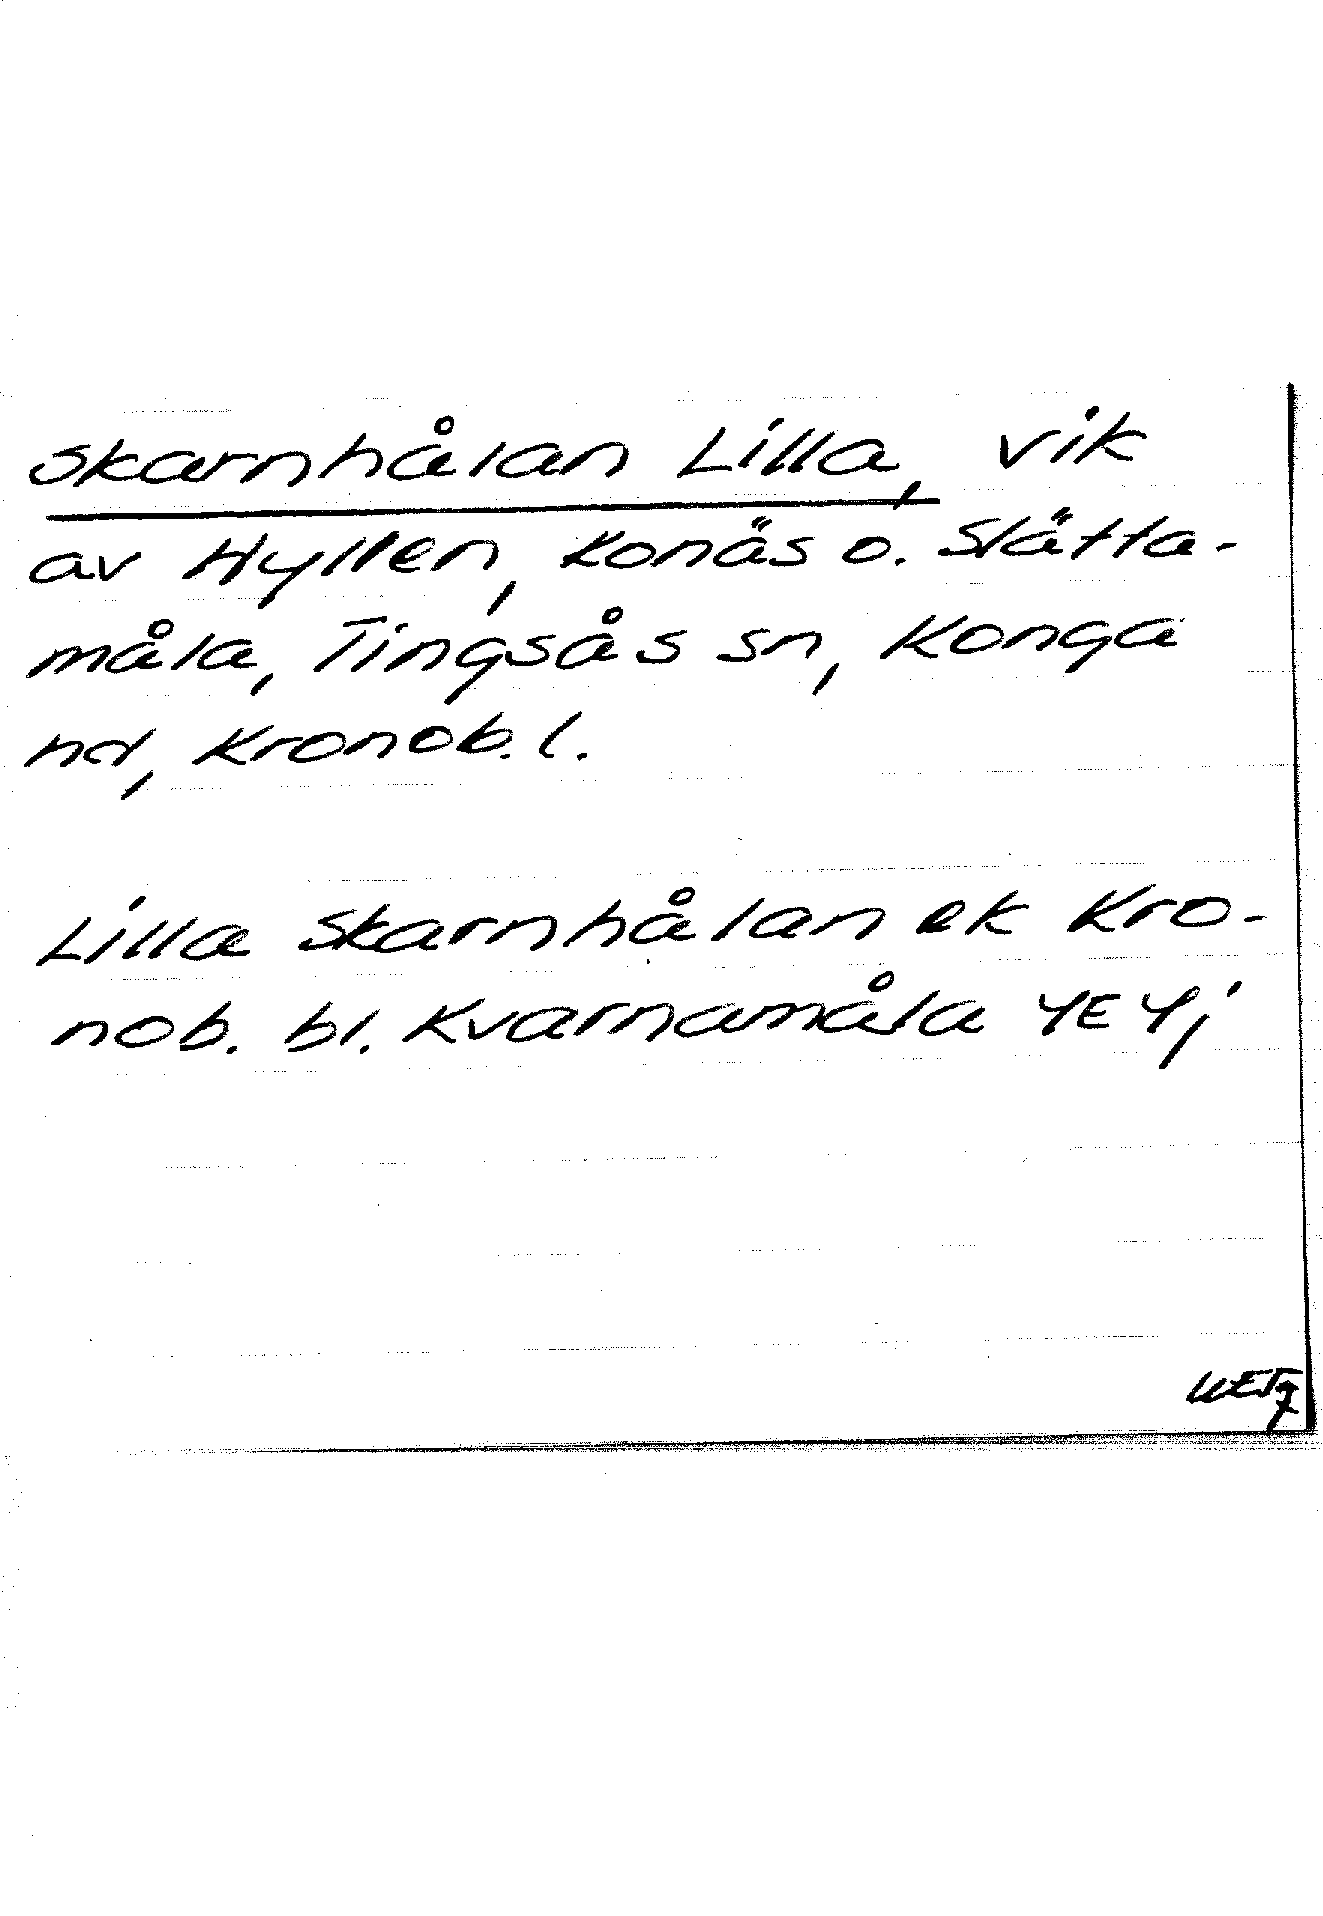 Skarnhålan Lilla, vik
av Hyllen, Konäs o. Slätta-
måla, Tingsås sn, Konga
hd, Kronob. l.
Lilla Skarnhålan ek Kro-
nob. bl. Kvarnamåla 4E4j